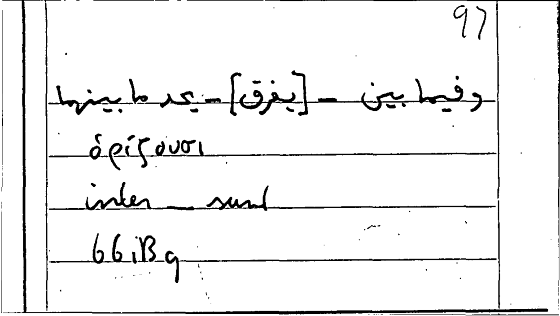 97
وفيما بين – [يفرق] – يحد ما بينهما
ὁρίζουσι
inter – sunt
66iB9